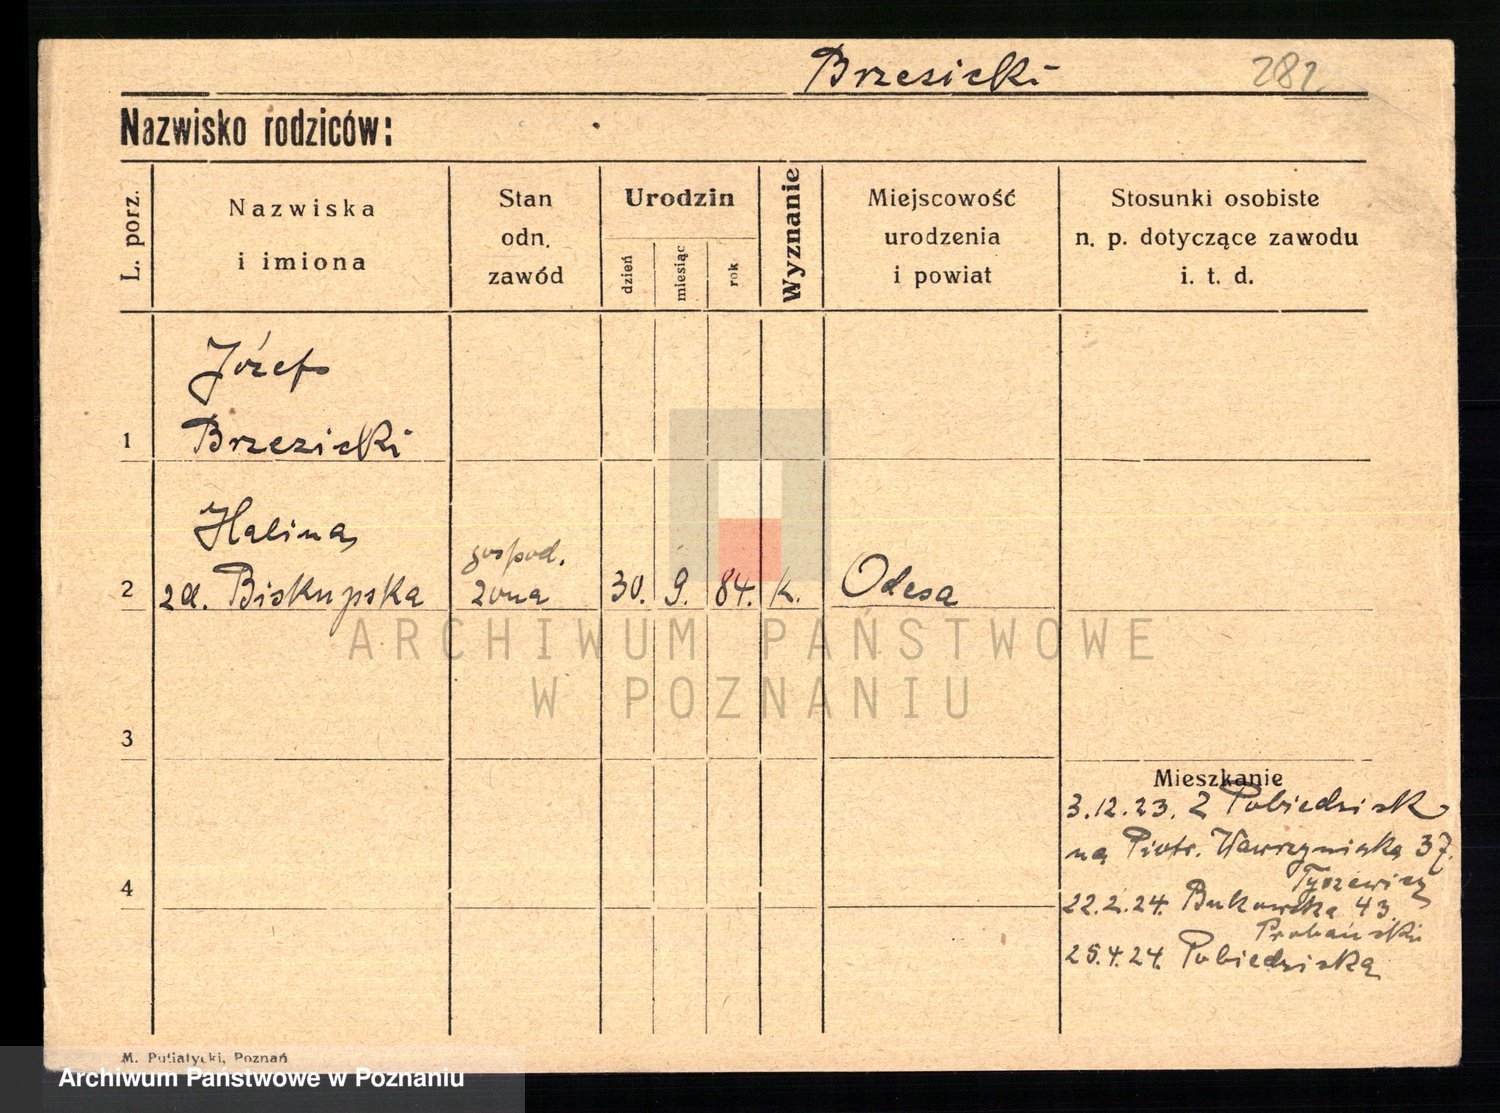 Brzezicki 282
Nazwisko rodziców:
L. porz.
Nazwiska
i imiona
Stan
odn.
zawód
Urodzin
dzień
miesiąc
rok
Wyznanie
Miejscowość
urodzenia
i powiat
Stosunki osobiste
n. p. dotyczące zawodu
i. t. d.
Józef
1 Brzezicki
Halina
gospod.
2 zd. Biskupska żona 30. 9. 84. k. Odesa
ARCHIWUM PAŃSTWOWE
W POZNANIU
3
Mieszkanie
3.12.23. Z Pobiedzisk
na Piotr. Wawrzyniaka 37.
4
22.2.24. Bukowska 43.
25.4.24. Pobiedziska
M. Putiatycki, Poznań
Archiwum Państwowe w Poznaniu